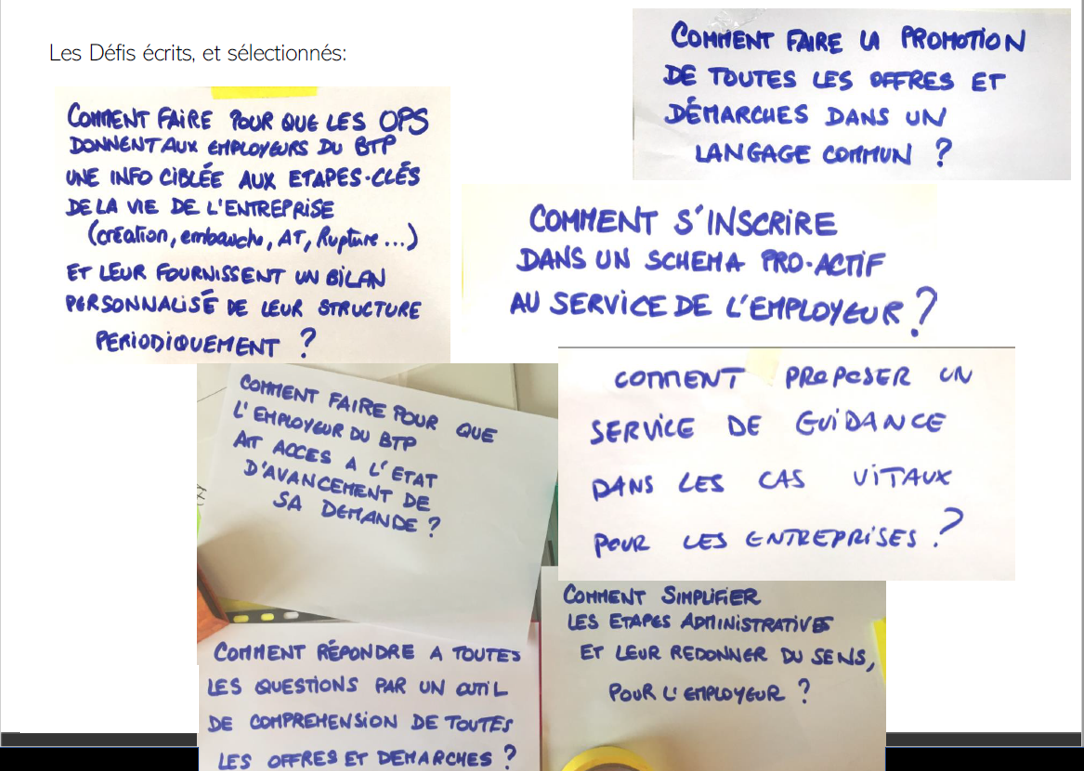 Les Défis écrits, et sélectionnés:
COMMENT FAIRE POUR QUE LES OPS
DONNENT AUX EMPLOYEURS DU BTP
UNE INFO CIBLÉE AUX ETAPES-CLÉS
DE LA VIE DE L'ENTREPRISE
(création, embauche, AT, Rupture...)
ET LEUR FOURNISSENT UN BILAN
PERSONNALISÉ DE LEUR STRUCTURE
PERIODIQUEMENT ?
COMMENT FAIRE LA PROMOTION
DE TOUTES LES OFFRES ET
DÉMARCHES DANS UN
LANGAGE COMMUN ?
COMMENT S'INSCRIRE
DANS UN SCHEMA PRO-ACTIF
AU SERVICE DE L'EMPLOYEUR ?
COMMENT FAIRE POUR QUE
L'EMPLOYEUR DU BTP
AIT ACCES A L'ETAT
D'AVANCEMENT DE
SA DEMANDE ?
COMMENT PROPOSER UN
SERVICE DE GUIDANCE
DANS LES CAS VITAUX
POUR LES ENTREPRISES ?
COMMENT RÉPONDRE A TOUTES
LES QUESTIONS PAR UN OUTIL
DE COMPREHENSION DE TOUTES
LES OFFRES ET DEMARCHES ?
COMMENT SIMPLIFIER
LES ETAPES ADMINISTRATIVES
ET LEUR REDONNER DU SENS,
POUR L'EMPLOYEUR ?